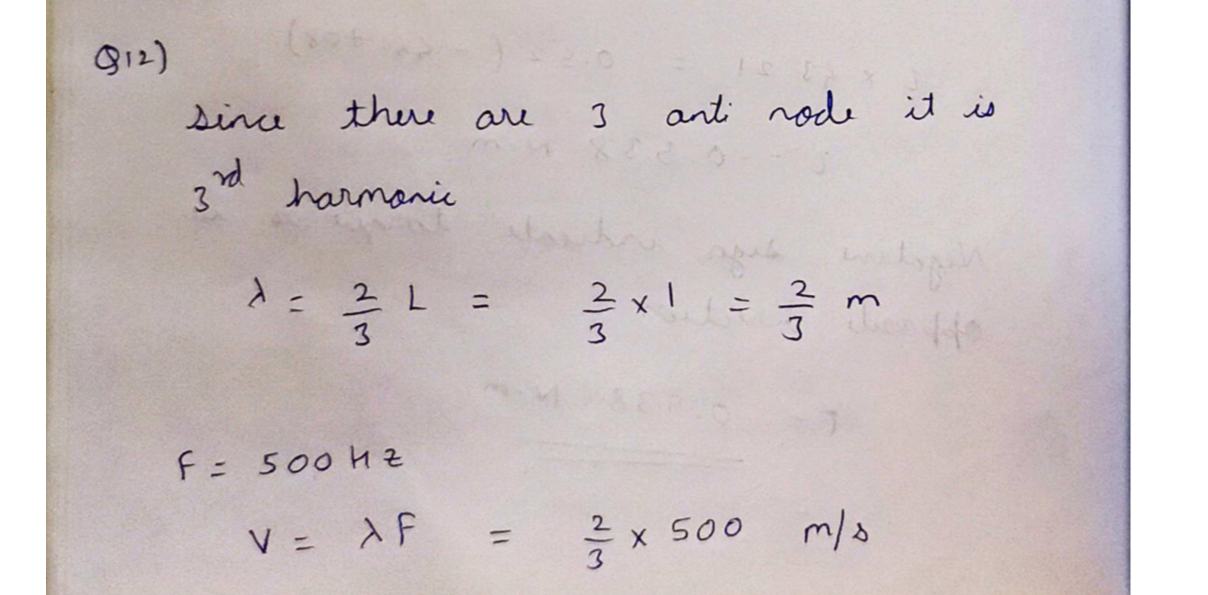 Q12)
since there are 3 anti node it is
3rd harmonic
λ = 2/3 L = 2/3 x 1 = 2/3 m
F = 500 HZ
V = λF = 2/3 x 500 m/s